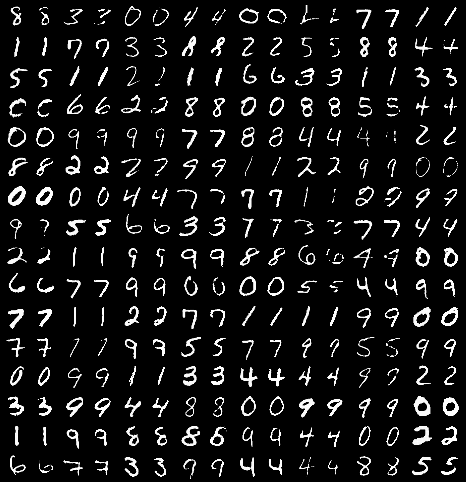 8 8 3 3 0 0 4 4 0 0 7 7 1 1
1 1 7 7 3 3 8 8 2 2 5 5 8 8 4 4
5 5 1 1 2 2 1 1 6 6 3 3 1 1 3 3
0 0 6 6 2 2 8 8 0 0 8 8 5 5 4 4
0 0 9 9 9 9 7 7 8 8 4 4 4 4 2 2
8 8 2 2 7 7 9 9 1 1 2 2 9 9 0 0
0 0 0 0 4 4 7 7 7 7 1 1 2 2 9 9
9 9 5 5 6 6 3 3 7 7 3 3 7 7 4 4
2 2 1 1 9 9 9 9 8 8 6 6 4 4 0 0
6 6 7 7 9 9 0 0 0 0 5 5 4 4 9 9
7 7 1 1 2 2 7 7 1 1 1 1 9 9 0 0
7 7 7 7 9 9 5 5 7 7 9 9 5 5 9 9
0 0 9 9 1 1 3 3 4 4 4 4 9 9 2 2
3 3 9 9 4 4 8 8 0 0 9 9 9 9 0 0
1 1 9 9 8 8 8 8 9 9 4 4 0 0 2 2
6 6 7 7 3 3 9 9 4 4 4 4 8 8 5 5